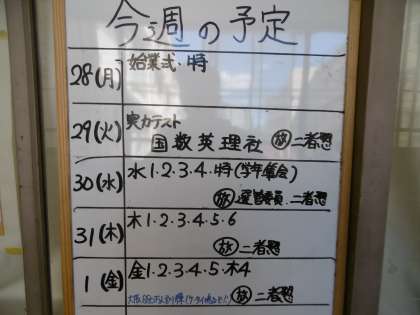 今週の予定
28(月) 始業式・時
29(火) 実力テスト
国数英理社 放 二者懇
30(水) 水1・2・3・4・時(学年集会)
放 選管委員・二者懇
31(木) 木1・2・3・4・5・6
放 二者懇
1(金) 金1・2・3・4・5・木4
放 二者懇